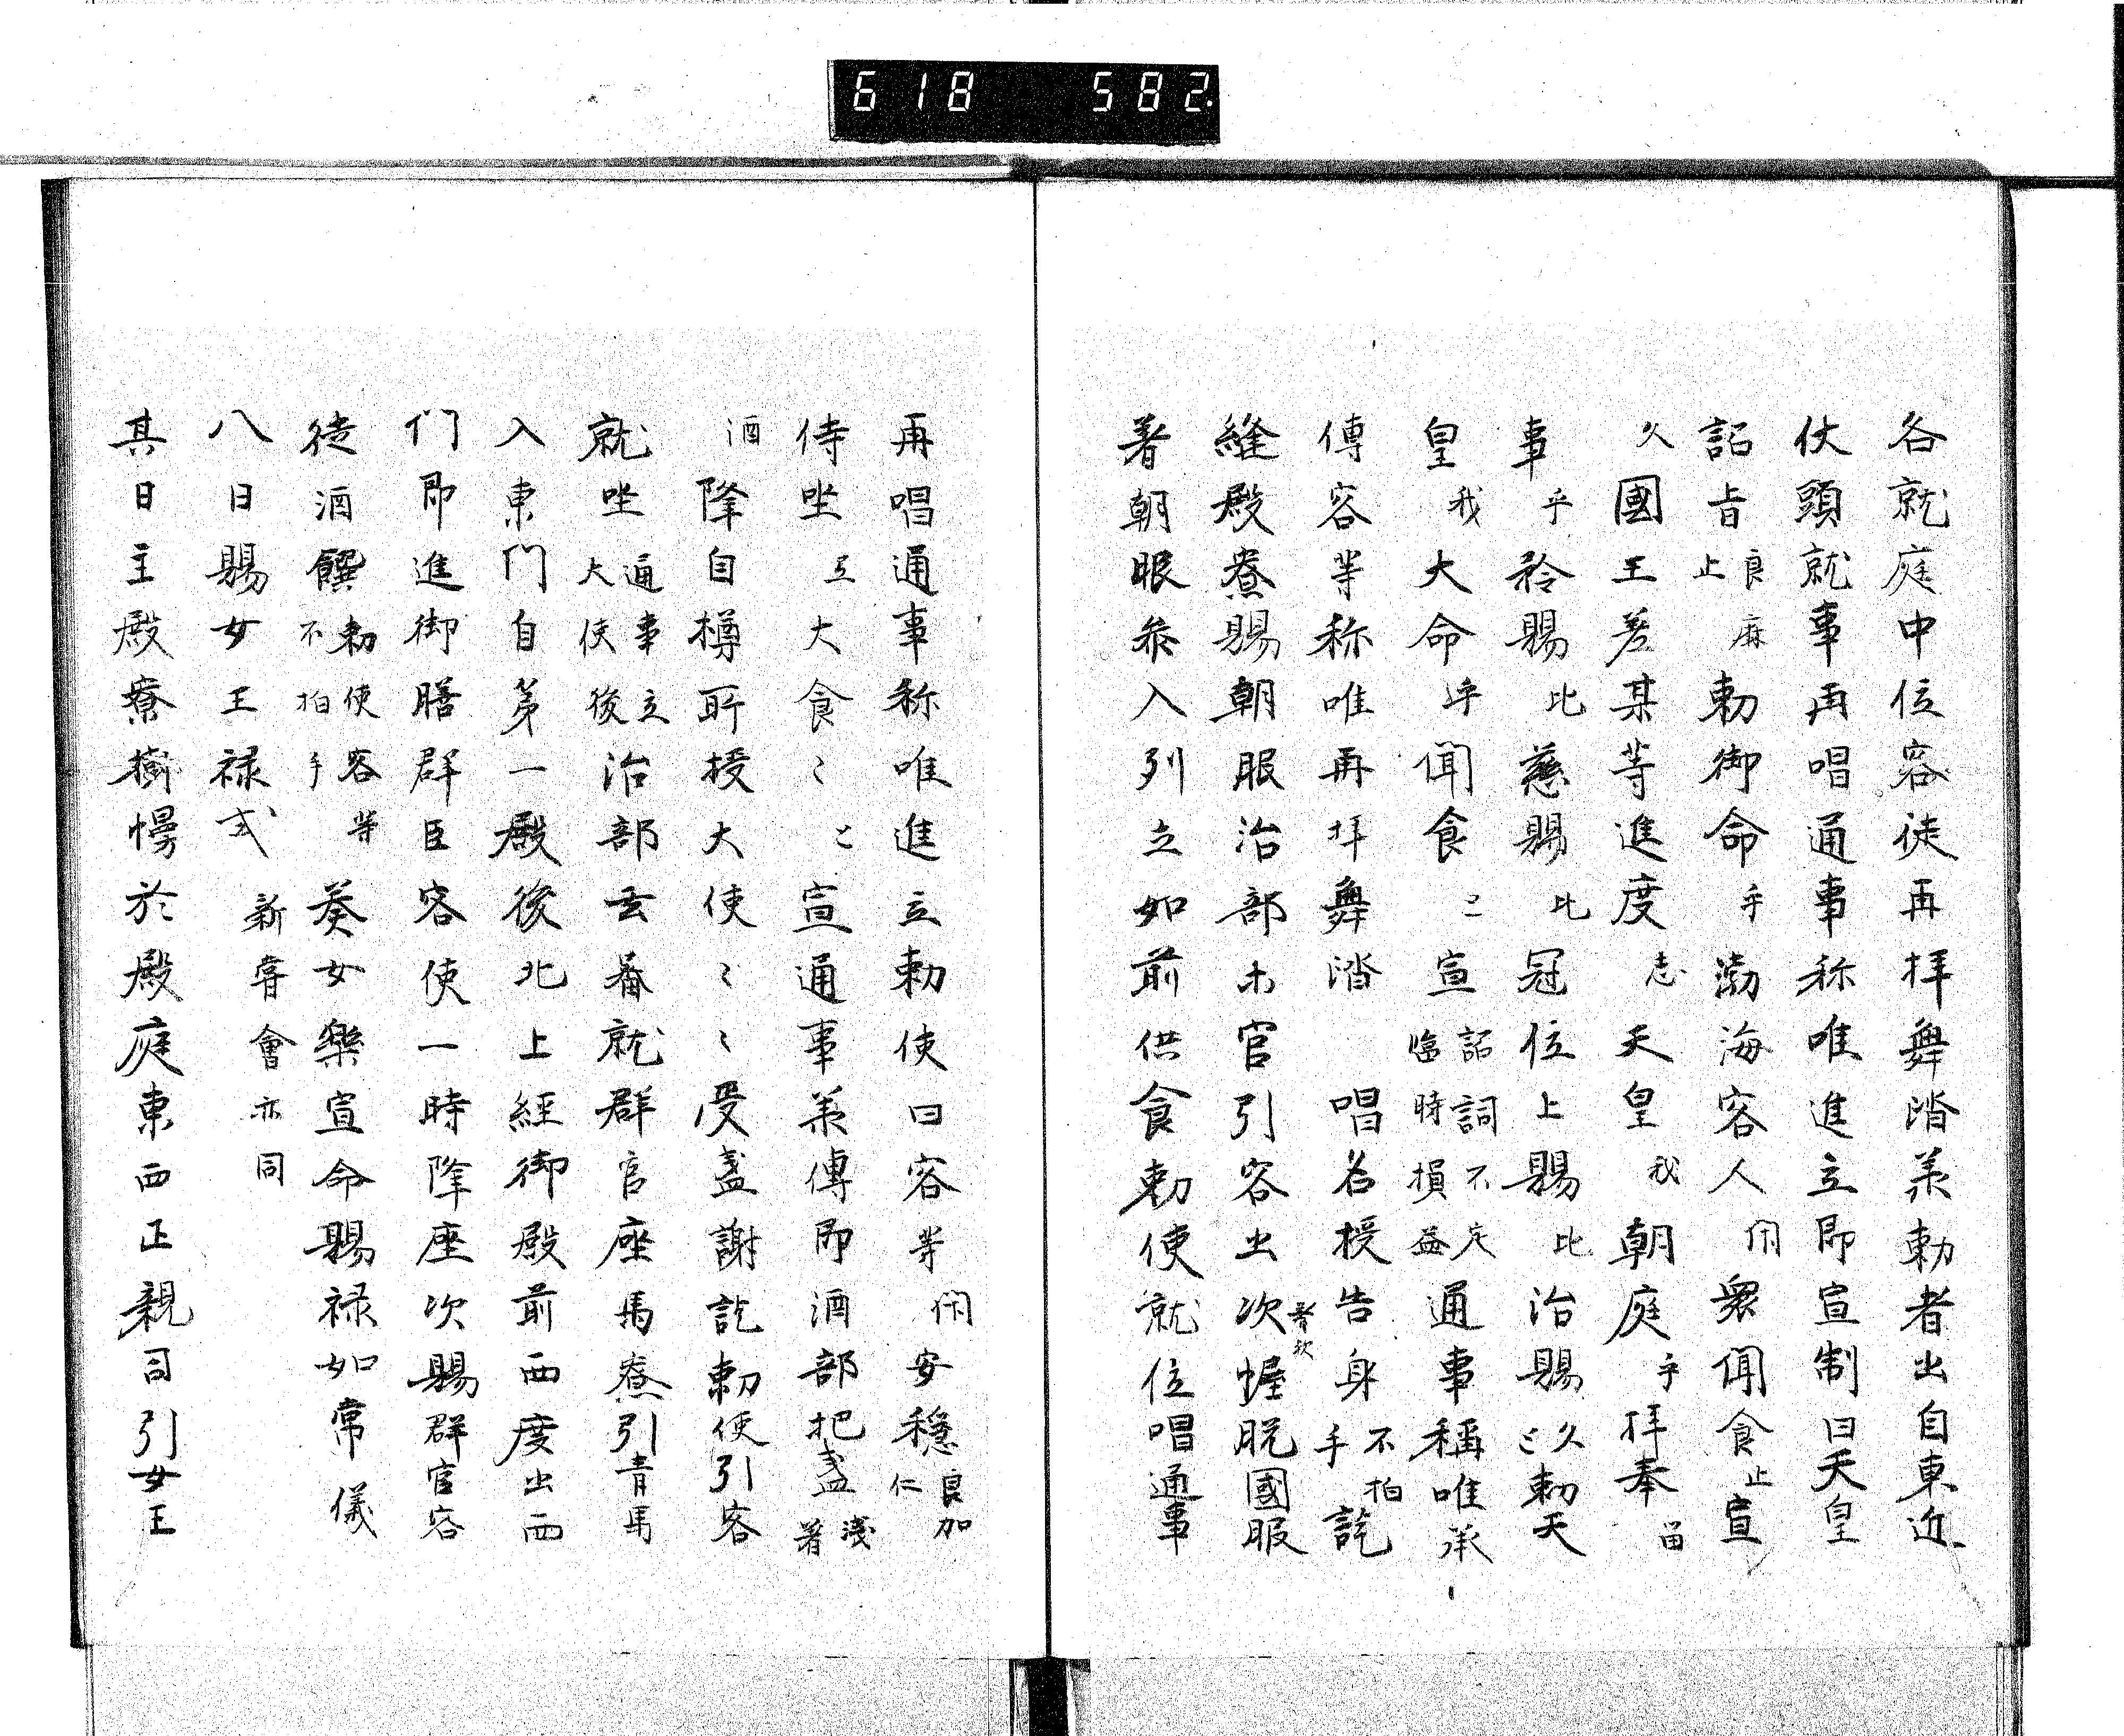 618 582
各就庭中位客徒再拝舞踏羕勅者出自東近
仗頭就事再唱通事称唯進立即宣制曰天皇
詔旨良麻止勅御命乎渤海客人聞衆聞食止宣
久國王差某等進度志天皇我朝庭乎拝奉留
事乎矜賜比慈賜比冠位上賜比治賜久ミ勅天
皇我大命乎聞食ミ宣詔詞不定臨時損益通事稱唯承
傳客等称唯再拝舞踏唱名授告身不拍手訖
縫殿寮賜朝服治部木官引客出次幄脱國服
著朝服参入列立如前供食勅使就位唱通事
再唱通事称唯進立勅使曰客等聞安穏良加仁
侍坐弖大食ミミ宣通事羕傳即酒部把盞浅着
酒降自樽所授大使ミミ受盞謝訖勅使引客
就坐通事立大使後治部玄番就群官座馬寮引青馬
入東門自第一殿後北上経御殿前西度出西
门即進御膳群臣客使一時降座次賜群官客
徒酒饌勅使客等不拍手奏女樂宣命賜禄如常儀
八日賜女王禄式新嘗會亦同
其日主殿寮樹幔於殿庭東西正親司引女王